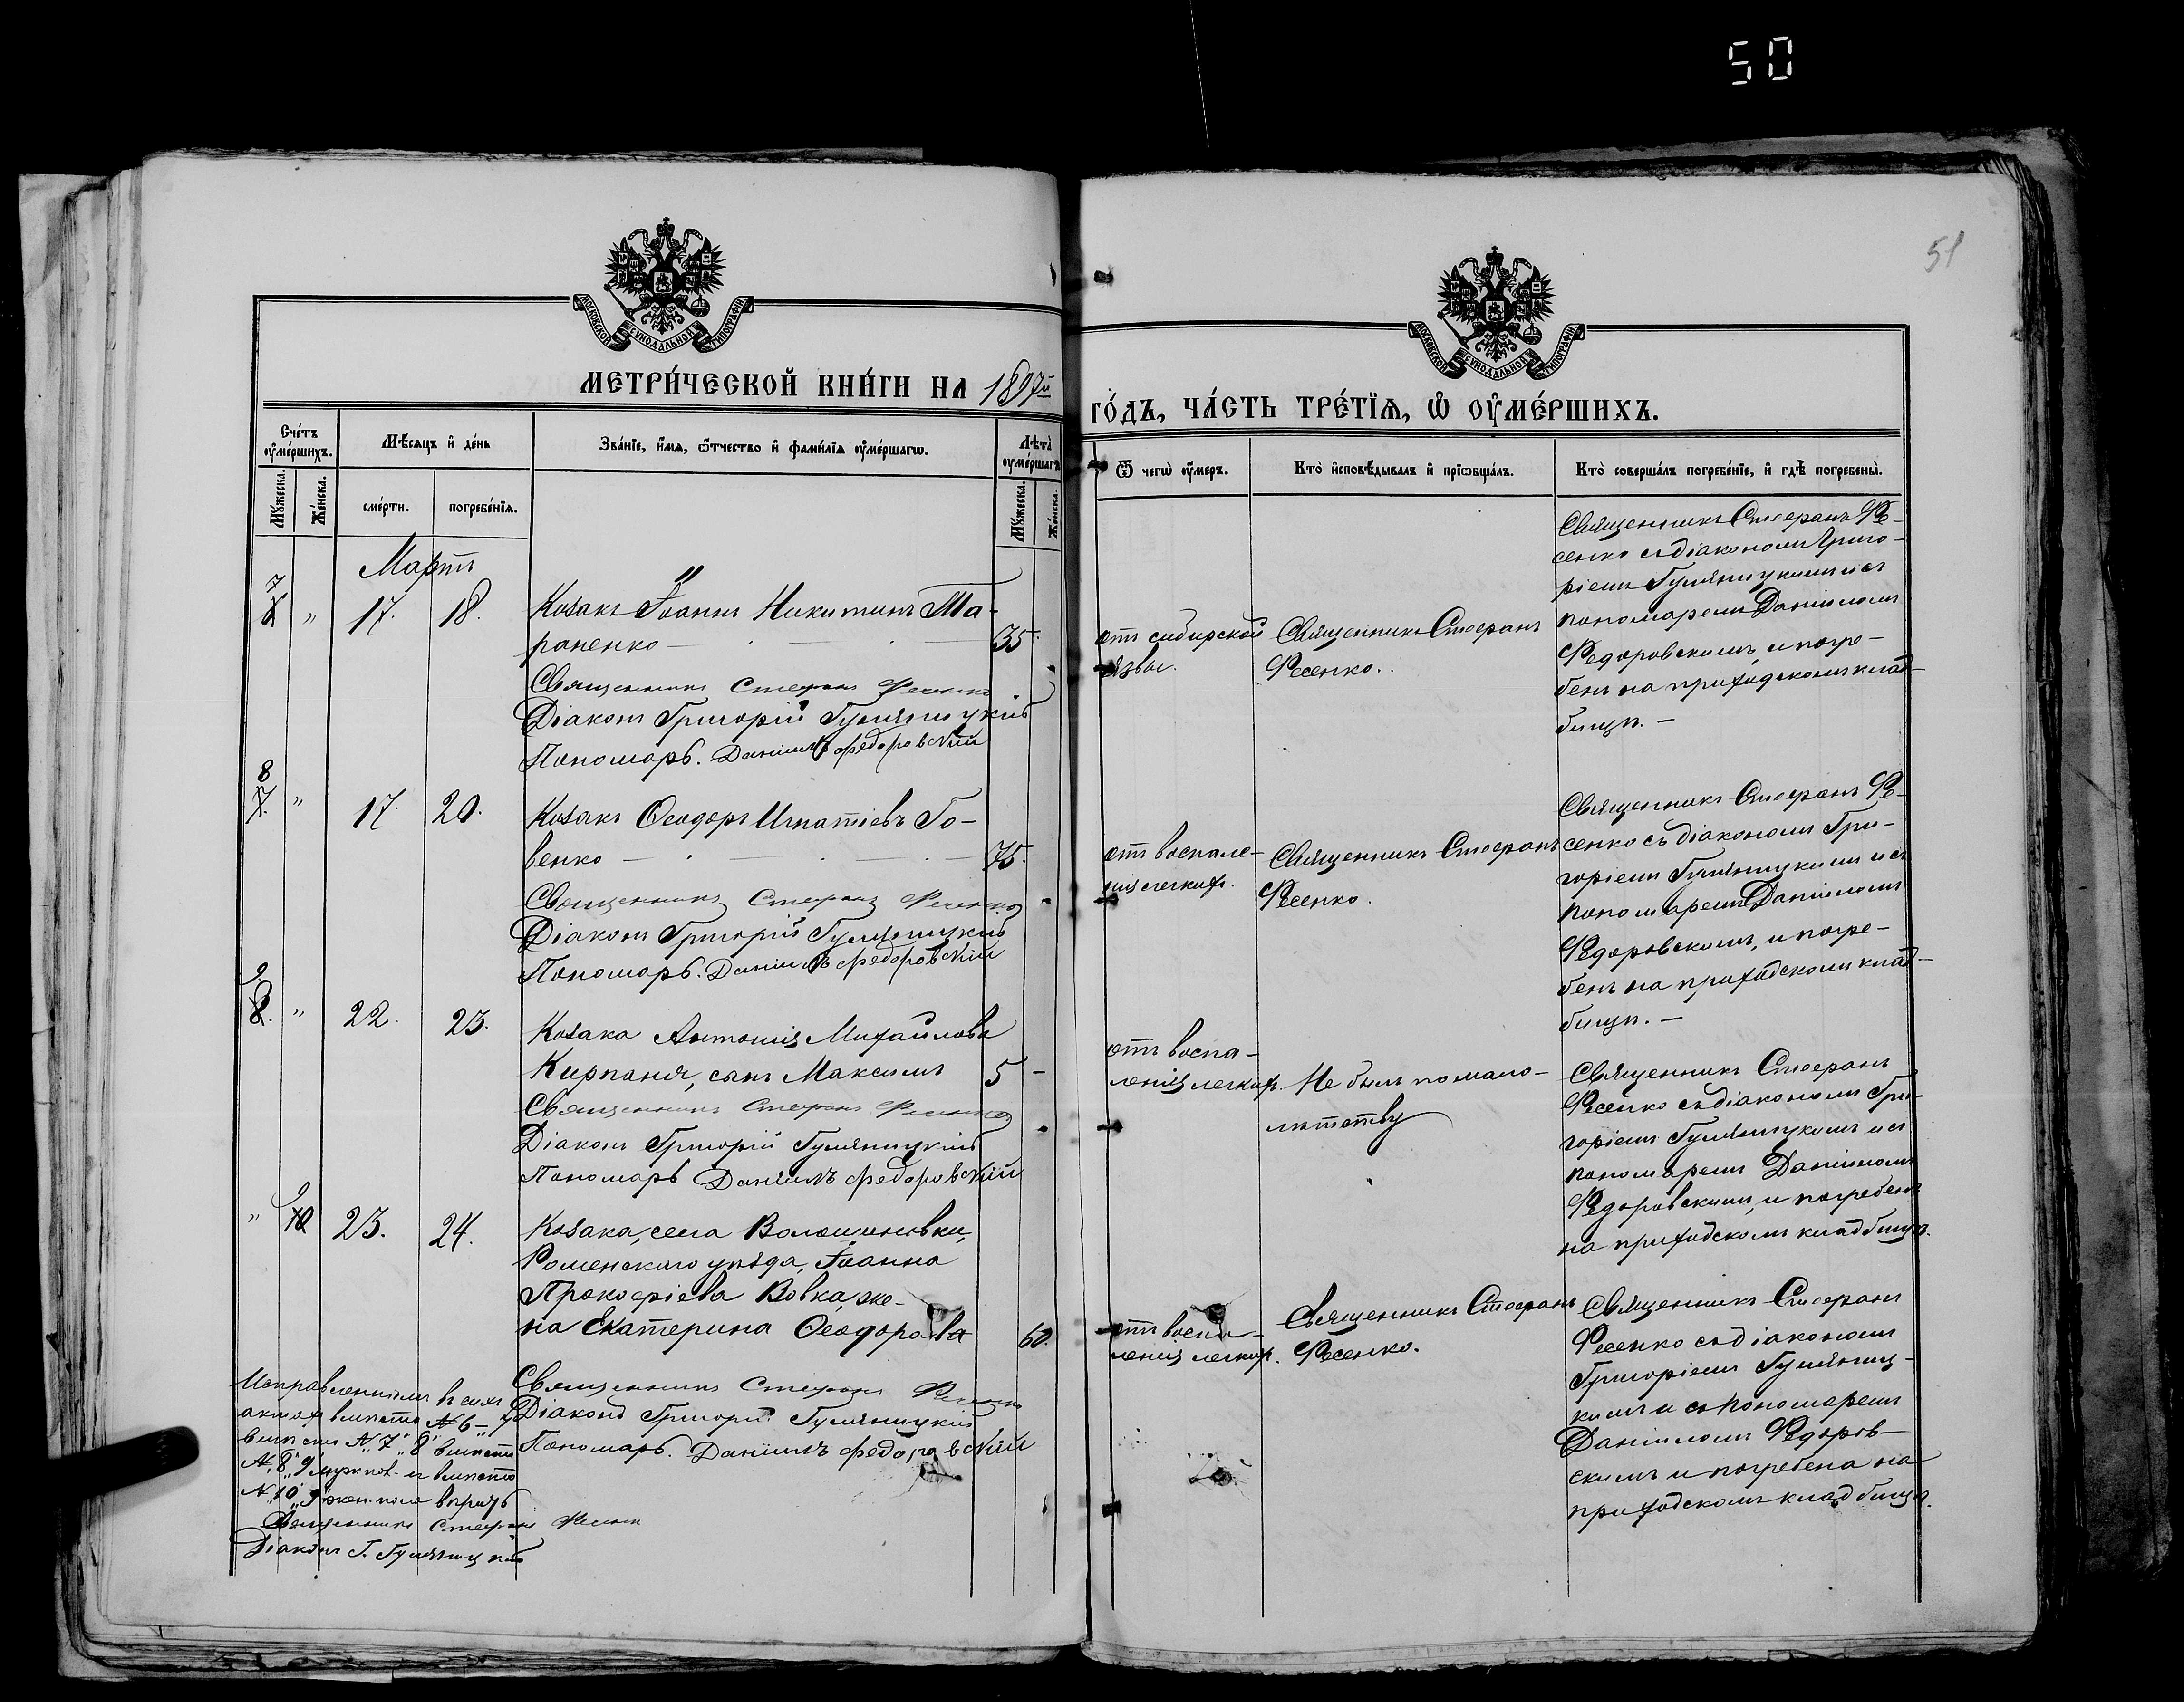 50
51
МОСКОВСКОЙ СѴНОДАЛЬНОЙ ТИПОГРАФІИ
МОСКОВСКОЙ СѴНОДАЛЬНОЙ ТИПОГРАФІИ
МЕТРИ́ЧЕСКОЙ КНИ́ГИ НА 1897й
ГО́ДЪ, ЧА́СТЬ ТРЕ́ТЇѦ, Ѽ ОУ҆МЕ́РШИХЪ.
Сче́тъ оу҆ме́ршихъ.
Мꙋжеска.
Же́нска.
Мѣ́сѧцъ и҆ де́нь
сме́рти.
погребе́нїѧ.
Зва́нїе, и҆́мѧ, ѻ҆́тчество и҆ фами́лїѧ оу҆ме́ршагѡ.
Лѣ́та оу҆ме́ршагѡ
Мꙋжеска.
Же́нска.
Ѿ чегѡ̀ оу҆́меръ.
Кто̀ и҆сповѣ́дывалъ и҆ прїѡбща́лъ.
Кто̀ соверша́лъ погребе́нїе, и҆ гдѣ̀ погребены̀.
Мартъ
7
" 17. 18.
Козакъ Іоаннъ Никитинъ Та-
раненко — 35.
Священникъ Стефанъ Фесенко
Діаконъ Григорій Гуляницкій
Пономарь. Даніилъ Федоровскій
отъ сибирской
язвы.
Священникъ Стефанъ
Фесенко.
Священникъ Стефанъ Фе-
сенко съ діакономъ Григо-
ріемъ Гуляницкимъ и съ
пономаремъ Даніиломъ
Федоровскимъ, и погре-
бенъ на приходскомъ клад-
бищѣ. —
8
7. " 17. 20.
Козакъ Ѳеодоръ Игнатіевъ Го-
венко — 75.
Священникъ Стефанъ Фесенко
Діаконъ Григорій Гуляницкій
Пономарь. Даніилъ Федоровскій
отъ воспале-
нія легкихъ.
Священникъ Стефанъ
Фесенко.
Священникъ Стефанъ Фе-
сенко съ діакономъ Гри-
горіемъ Гуляницкимъ и съ
пономаремъ Даніиломъ
Федоровскимъ, и погре-
бенъ на приходскомъ клад-
бищѣ. —
9
8. " 22. 23.
Козака Антонія Михайлова
Кирпаня, сынъ Максимъ 5 —
Священникъ Стефанъ Фесенко
Діаконъ Григорій Гуляницкій
Пономарь Даніилъ Федоровскій
отъ воспа-
ленія легкихъ.
Не былъ по мало-
лѣтству
Священникъ Стефанъ
Фесенко съ діакономъ Гри-
горіемъ Гуляницкимъ и съ
пономаремъ Даніиломъ
Федоровскимъ, и погребенъ
на приходскомъ кладбищѣ.
9
" 10 23. 24.
Козака, села Волошиновки,
Роменскаго уѣзда, Іоанна
Прокофіева Вовка, же-
на Екатерина Ѳеодорова 60.
Священникъ Стефанъ Фесенко
Діаконъ Григорій Гуляницкій
Пономарь. Даніилъ Федоровскій
отъ воспа-
ленія легкихъ.
Священникъ Стефанъ
Фесенко.
Священникъ Стефанъ
Фесенко съ діакономъ
Григоріемъ Гуляниц-
кимъ и съ пономаремъ
Даніиломъ Федоров-
скимъ и погребена на
приходскомъ кладбищѣ.
Исправленіямъ въ сихъ
актахъ вмѣсто № 6 — 7
вмѣсто № 7 „8" вмѣсто
№ „8" „9" муж. пол. и вмѣсто
№ „10" „9" жен. пола вѣрить
Священникъ Стефанъ Фесенко
Діаконъ Г. Гуляницкій